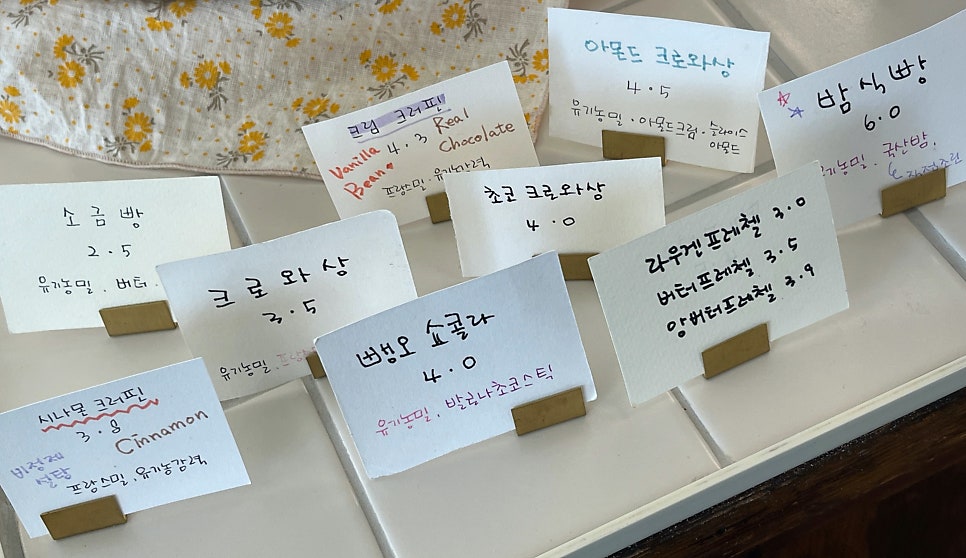 아몬드 크로와상
4.5
유기농밀 · 아몬드크림 · 슬라이스
아몬드
밤식빵
6.0
국산밤,
크림 크러핀
4.3
Vanilla
Bean
Real
Chocolate
프랑스밀, 유기감력
초코 크로와상
4.0
라우겐프레첼 3.0
버터프레첼 3.5
앙버터프레첼 3.9
소금빵
2.5
유기농밀 · 버터
크로와상
3.5
유기농밀
뺑오 쇼콜라
4.0
유기농밀, 발로나초코스틱
시나몬 크러핀
3.8
Cinnamon
비정제
설탕
프랑스밀, 유기농감력